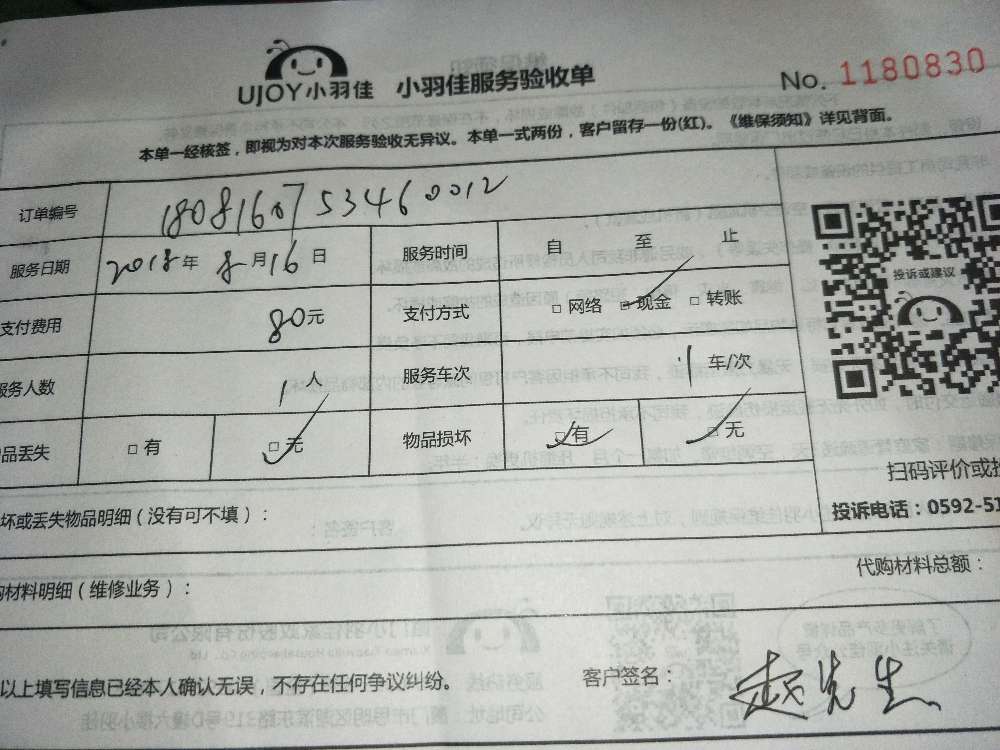 UJOY小羽佳 小羽佳服务验收单 No. 1180830
本单一经核签，即视为对本次服务验收无异议。本单一式两份，客户留存一份(红)。《维保须知》详见背面。
订单编号 1808160753460012
服务日期 2018年 8月16日 服务时间 自 至 止
支付费用 80元 支付方式 □网络 □现金 □转账
服务人数 1人 服务车次 1车/次
品丢失 □有 □无 物品损坏 □有 □无
投诉或建议
扫码评价或投
坏或丢失物品明细（没有可不填）： 投诉电话：0592-51
购材料明细（维修业务）： 代购材料总额：
以上填写信息已经本人确认无误，不存在任何争议纠纷。 客户签名： 赵先生